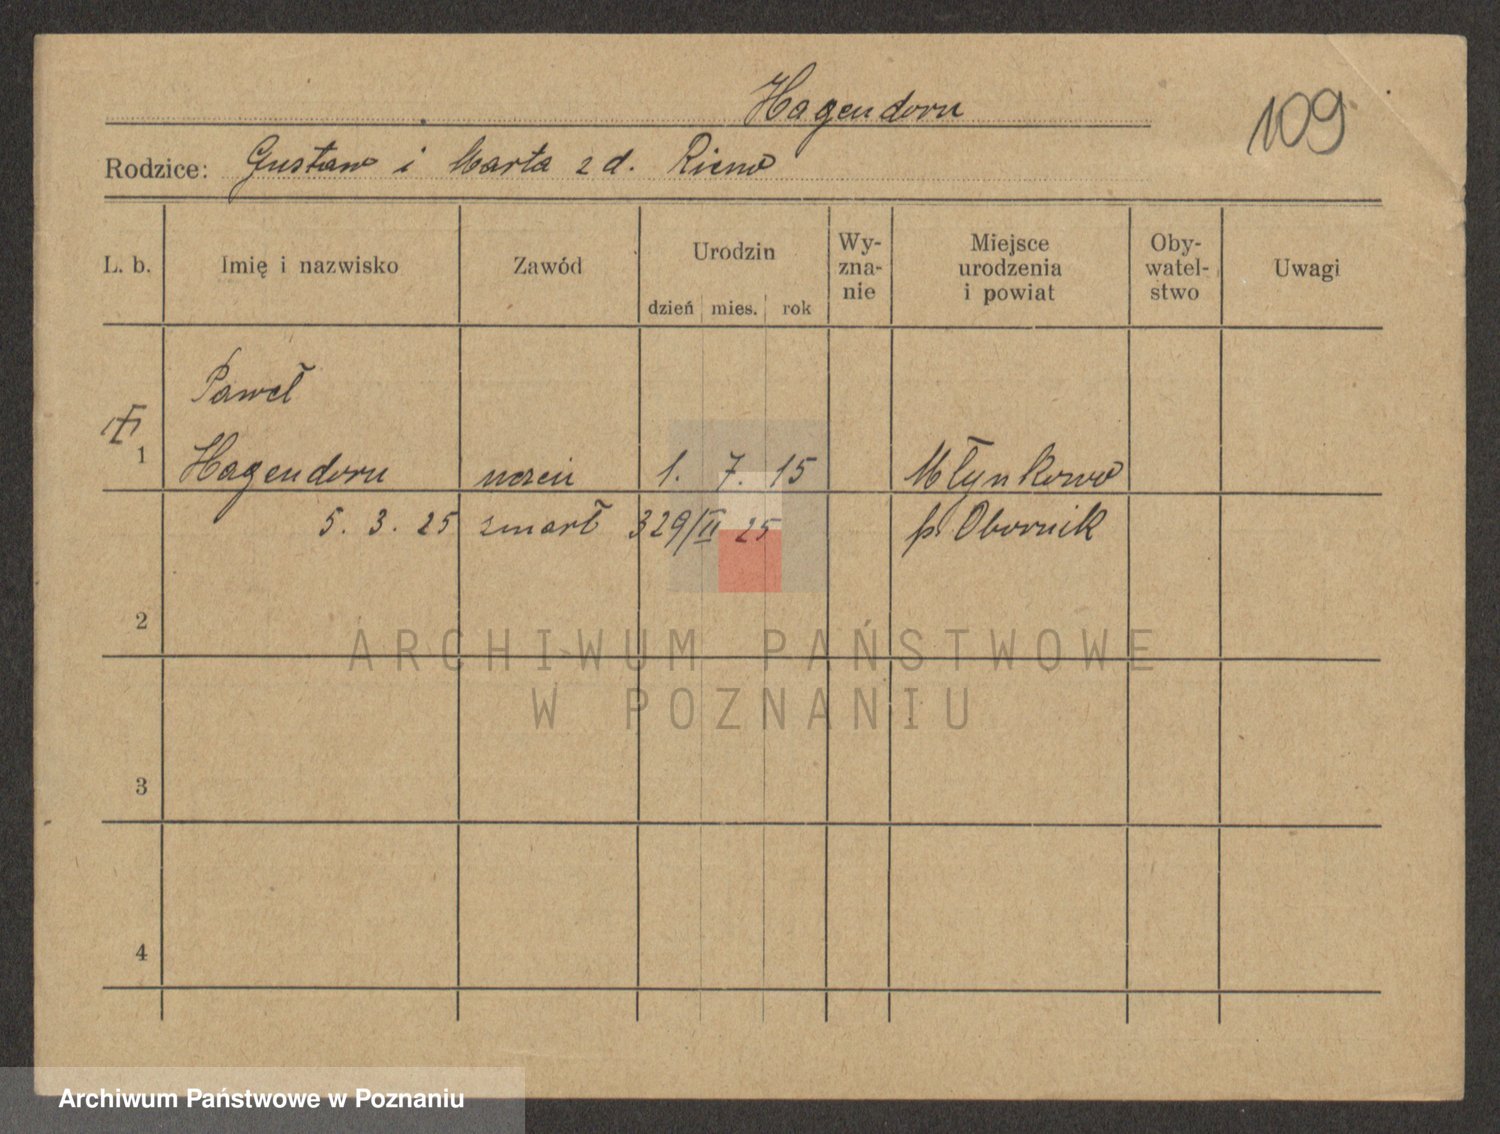 Hagendorn
109
Rodzice: Gustaw i Marta z d. Riemo
L. b. Imię i nazwisko Zawód Urodzin dzień mies. rok Wy-zna-nie Miejsce urodzenia i powiat Oby-watel-stwo Uwagi
Paweł
1 Hagendorn uczeń 1. 7. 15 Młynkowo
5. 3. 25 zmarł 329/II 25 p. Obornik
2
ARCHIWUM PAŃSTWOWE
W POZNANIU
3
4
Archiwum Państwowe w Poznaniu